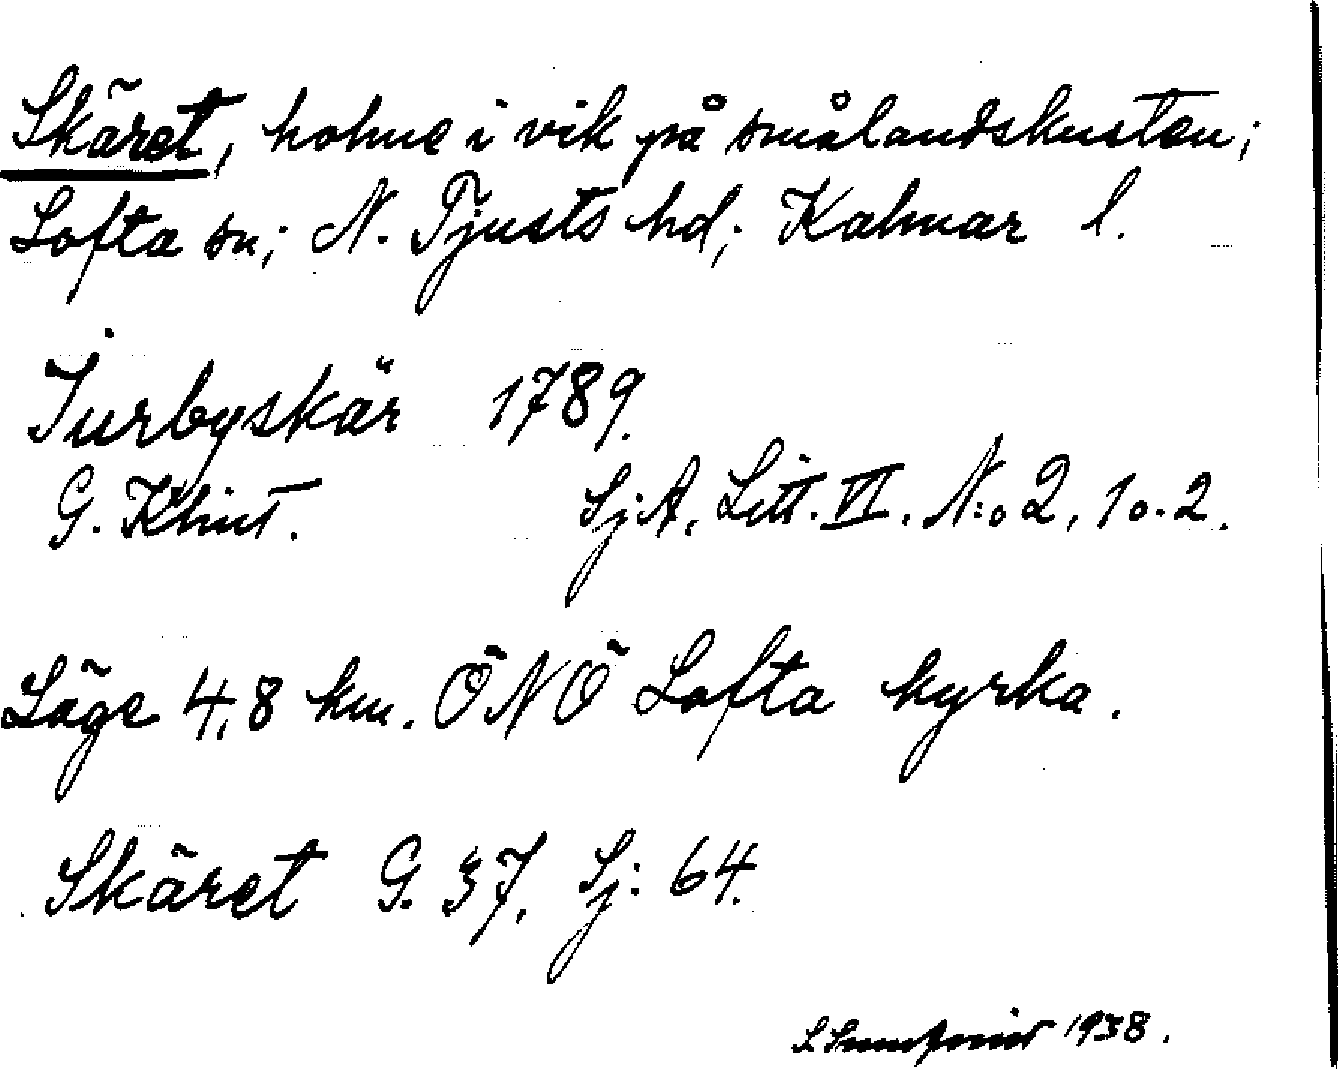 Skäret, holme i vik på smålandskusten;
Lofta sn; N. Tjusts hd; Kalmar l.
Jurbyskär 1789.
G. Klint. Sj.A. Litt. VI. N:o 2, 1 o. 2.
Läge 4,8 km. ÖNÖ Lofta kyrka.
Skäret G. 37, Sj: 64.
1938.